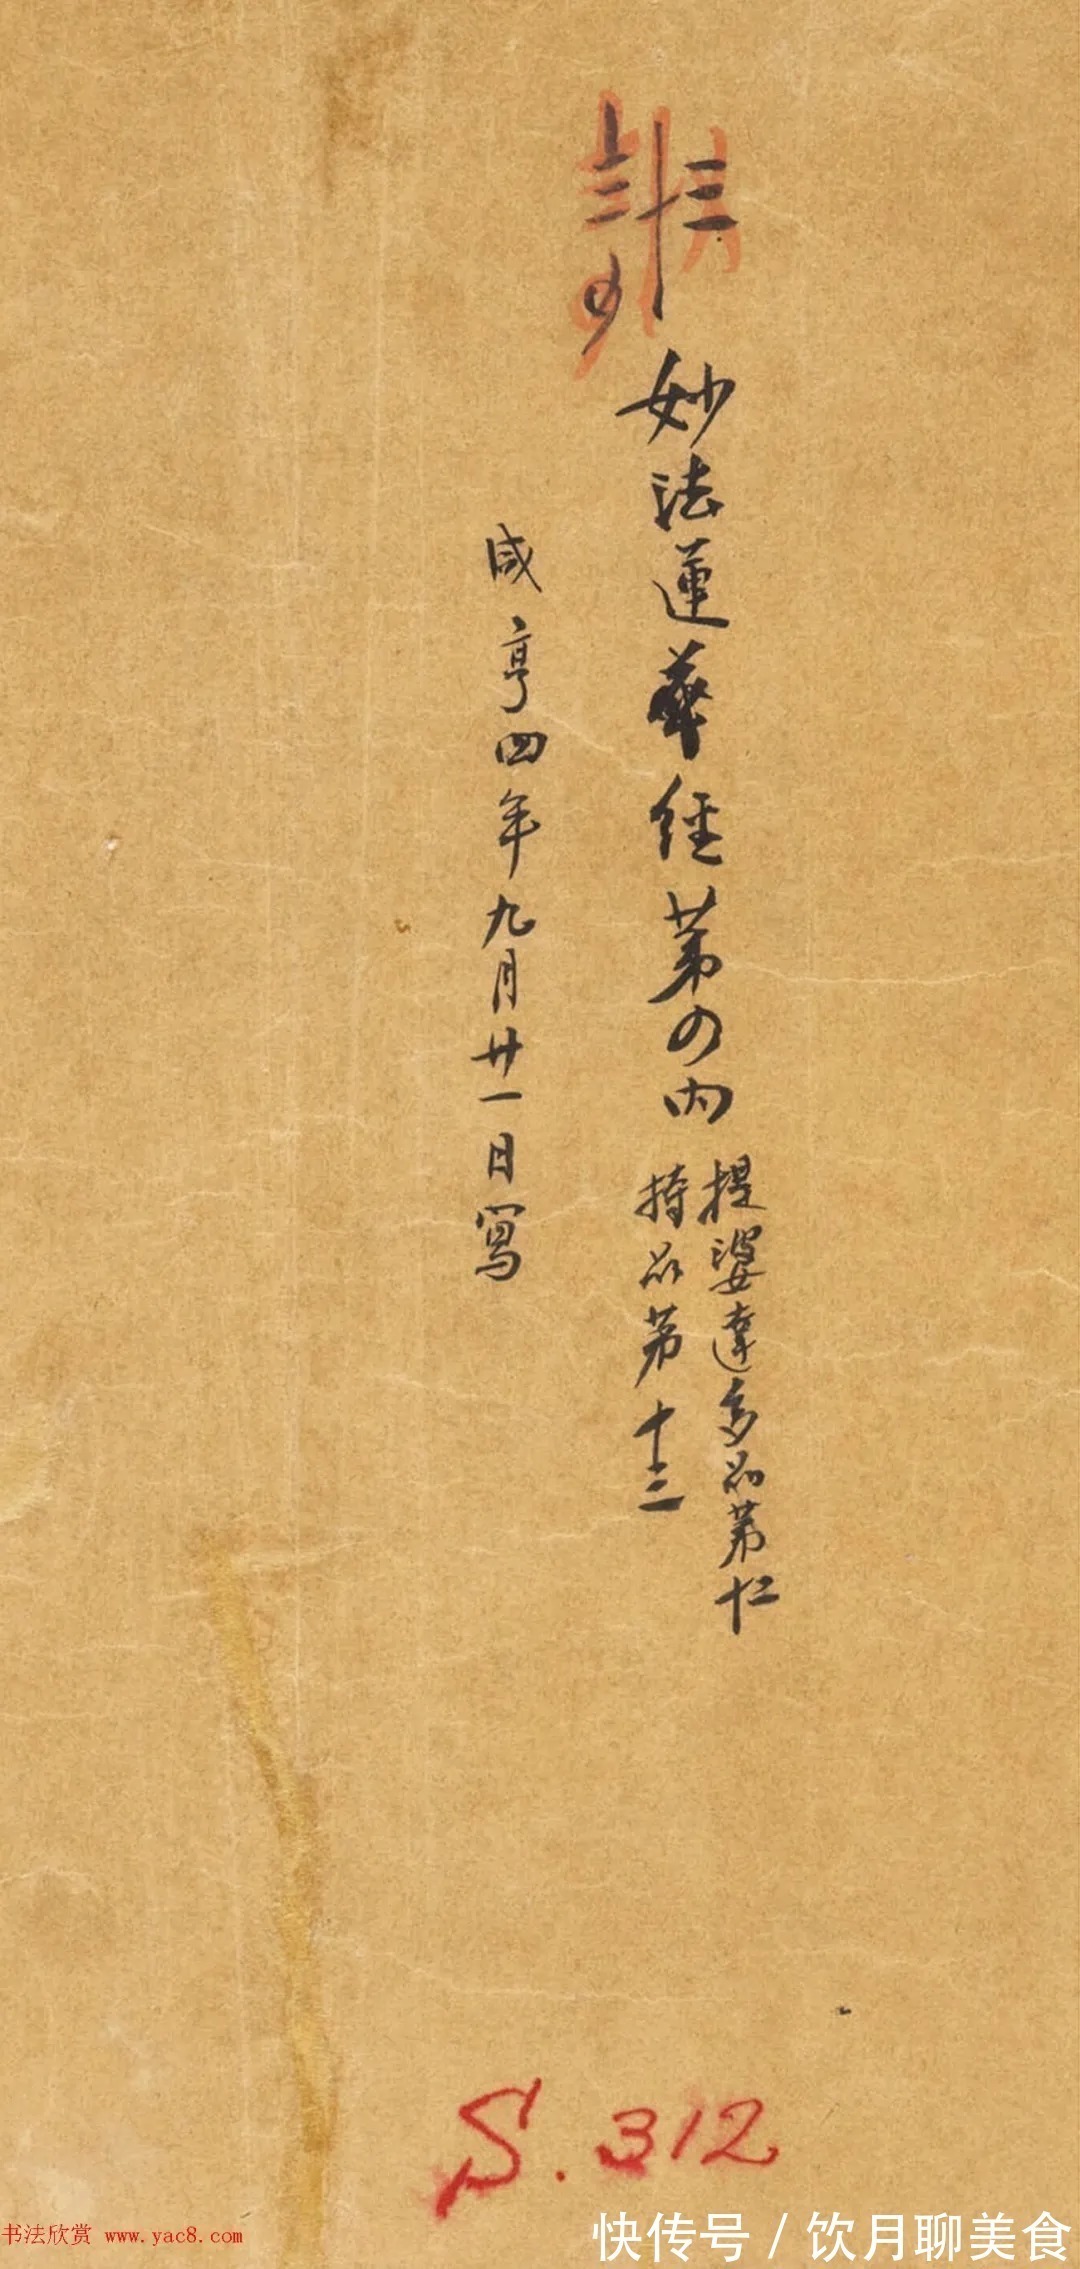 妙法蓮華經第四內
提婆達多品第十二
持品第十三
咸亨四年九月廿一日寫
S.312
书法欣赏 www.yac8.com
快传号/饮月聊美食